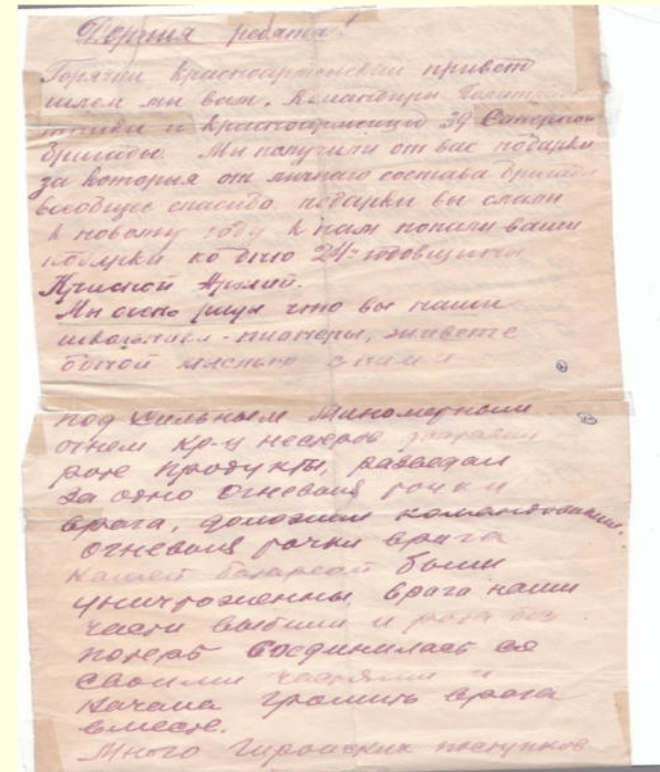 Дорогия ребята!
Горячий красноармейский привет
шлем мы вам. Командиры
и красноармейцы 39 Саперной
бригады. Мы получили от вас подарки
за которыя от личного состава бригады
вообщее спасибо, подарки вы слали
к новому году к нам попали ваши
подарки ко дню 24-годовщины
Красной Армии.
Мы очень рады что вы наши
школьники-пионеры, живете
одной мыслью с нами
под сильным минометным
огнем кр-ц Нестеров доставил
роте продукты, разведал
за одно огневыя точки
врага, доложил командованию.
огневыя точки врага
нашей батареей были
уничтоженны, врага наши
части выбили и рота без
потерь соединилась со
своими частями и
начала громить врага
вместе.
Много Геройских поступков